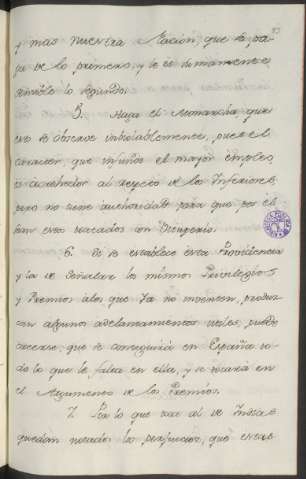 y mas nuestra Nacion, que se pa-
ga de lo primero, y le es sumamente
sensible lo segundo.
5. Haga el Monarcha, que
esto se observe inbiolablemente, pues el
caracter, que infunde el mayor empleo,
es acrehedor al respeto de los Inferiores,
pero no tiene authoridad para que por el
sean estos tratados con
6. Si se establece esta Providencia
y la de señalar los mismos Privilegios
y Premios a los que ya no inventen, produz-
can algunos adelantamientos utiles, puede
creerse, que se conseguirá en España to-
do lo que le falta en ella, y se tocará en
el Argumento de los Premios.
7. Por lo que trae al de Indias
quedan notados los perjuicios, que estas